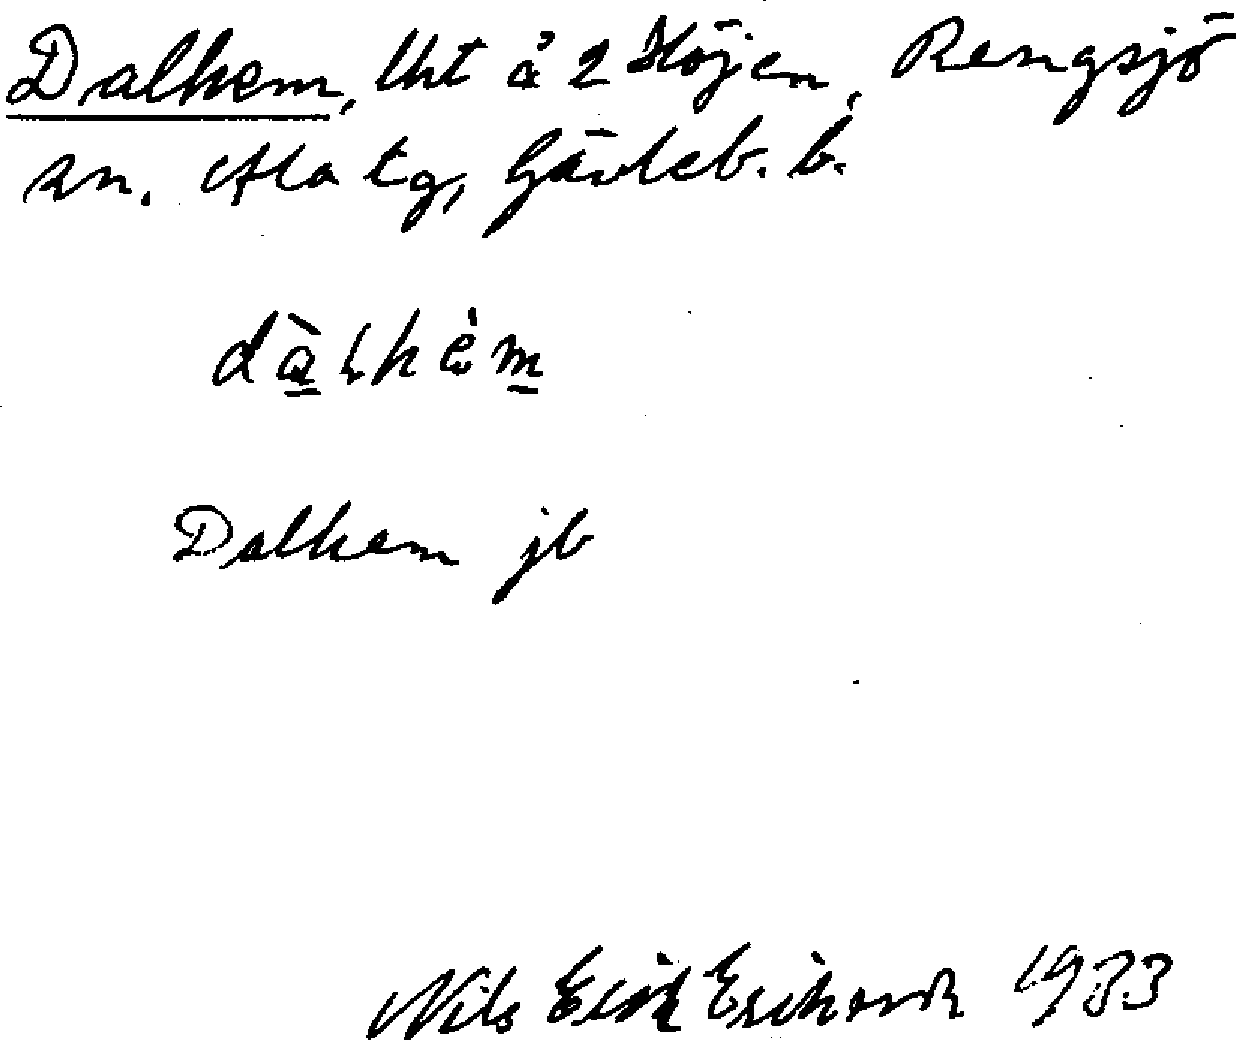 Dalhem, lht å 2 Höjen, Rengsjö
sn. Ala tg, Gävleb. l.
dàlhèm
Dalhem jb
Nils Erik Eriksson 1933